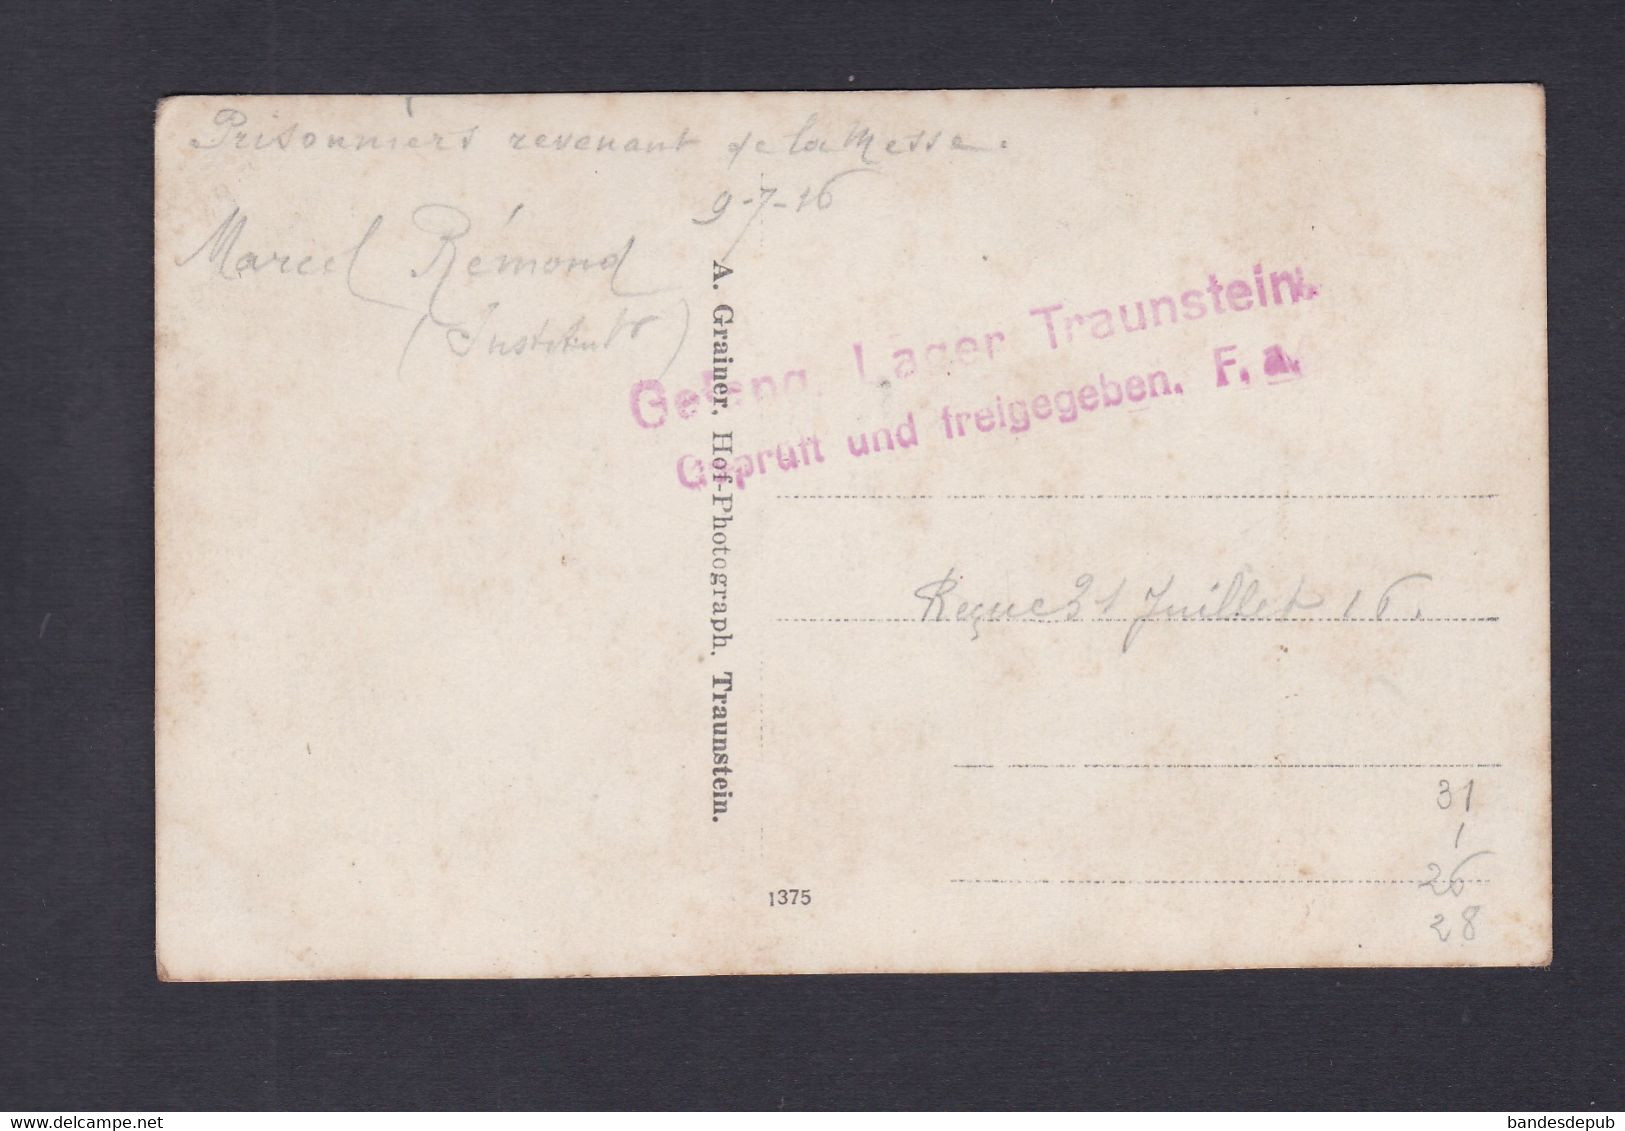 Prisonniers revenant de la Messe.
9-7-16
Marcel Rémond
(Institutr)
Gefang. Lager Traunstein.
Geprüft und freigegeben. F. a.
A. Grainer, Hof-Photograph, Traunstein.
Reçue 21 Juillet 16.
31
1
26
28
1375
www.delcampe.net
bandesdepub